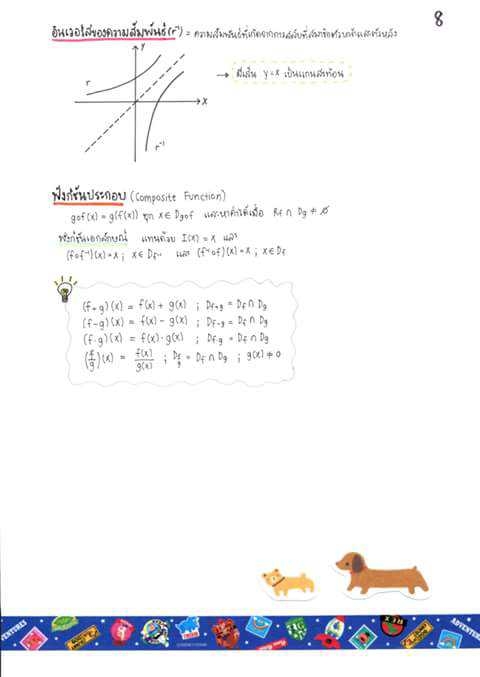 8
อินเวอร์สของความสัมพันธ์ (r⁻¹) = ความสัมพันธ์ที่เกิดจากการสลับที่สมาชิกตัวหน้าและตัวหลัง
Y
r
X
r⁻¹
→ มีเส้น y = x เป็นแกนสะท้อน
ฟังก์ชันประกอบ (Composite Function)
gof(x) = g(f(x)) ทุก x ∈ Dgof และหาค่าได้เมื่อ Rf ∩ Dg ≠ ∅
ฟังก์ชันเอกลักษณ์ แทนด้วย I(x) = x และ
(fof⁻¹)(x) = x ; x ∈ Df⁻¹ และ (f⁻¹of)(x) = x ; x ∈ Df
(f+g)(x) = f(x) + g(x) ; Df+g = Df ∩ Dg
(f-g)(x) = f(x) - g(x) ; Df-g = Df ∩ Dg
(f·g)(x) = f(x)·g(x) ; Df·g = Df ∩ Dg
(f/g)(x) = f(x)/g(x) ; Df/g = Df ∩ Dg ; g(x) ≠ 0
ADVENTURES